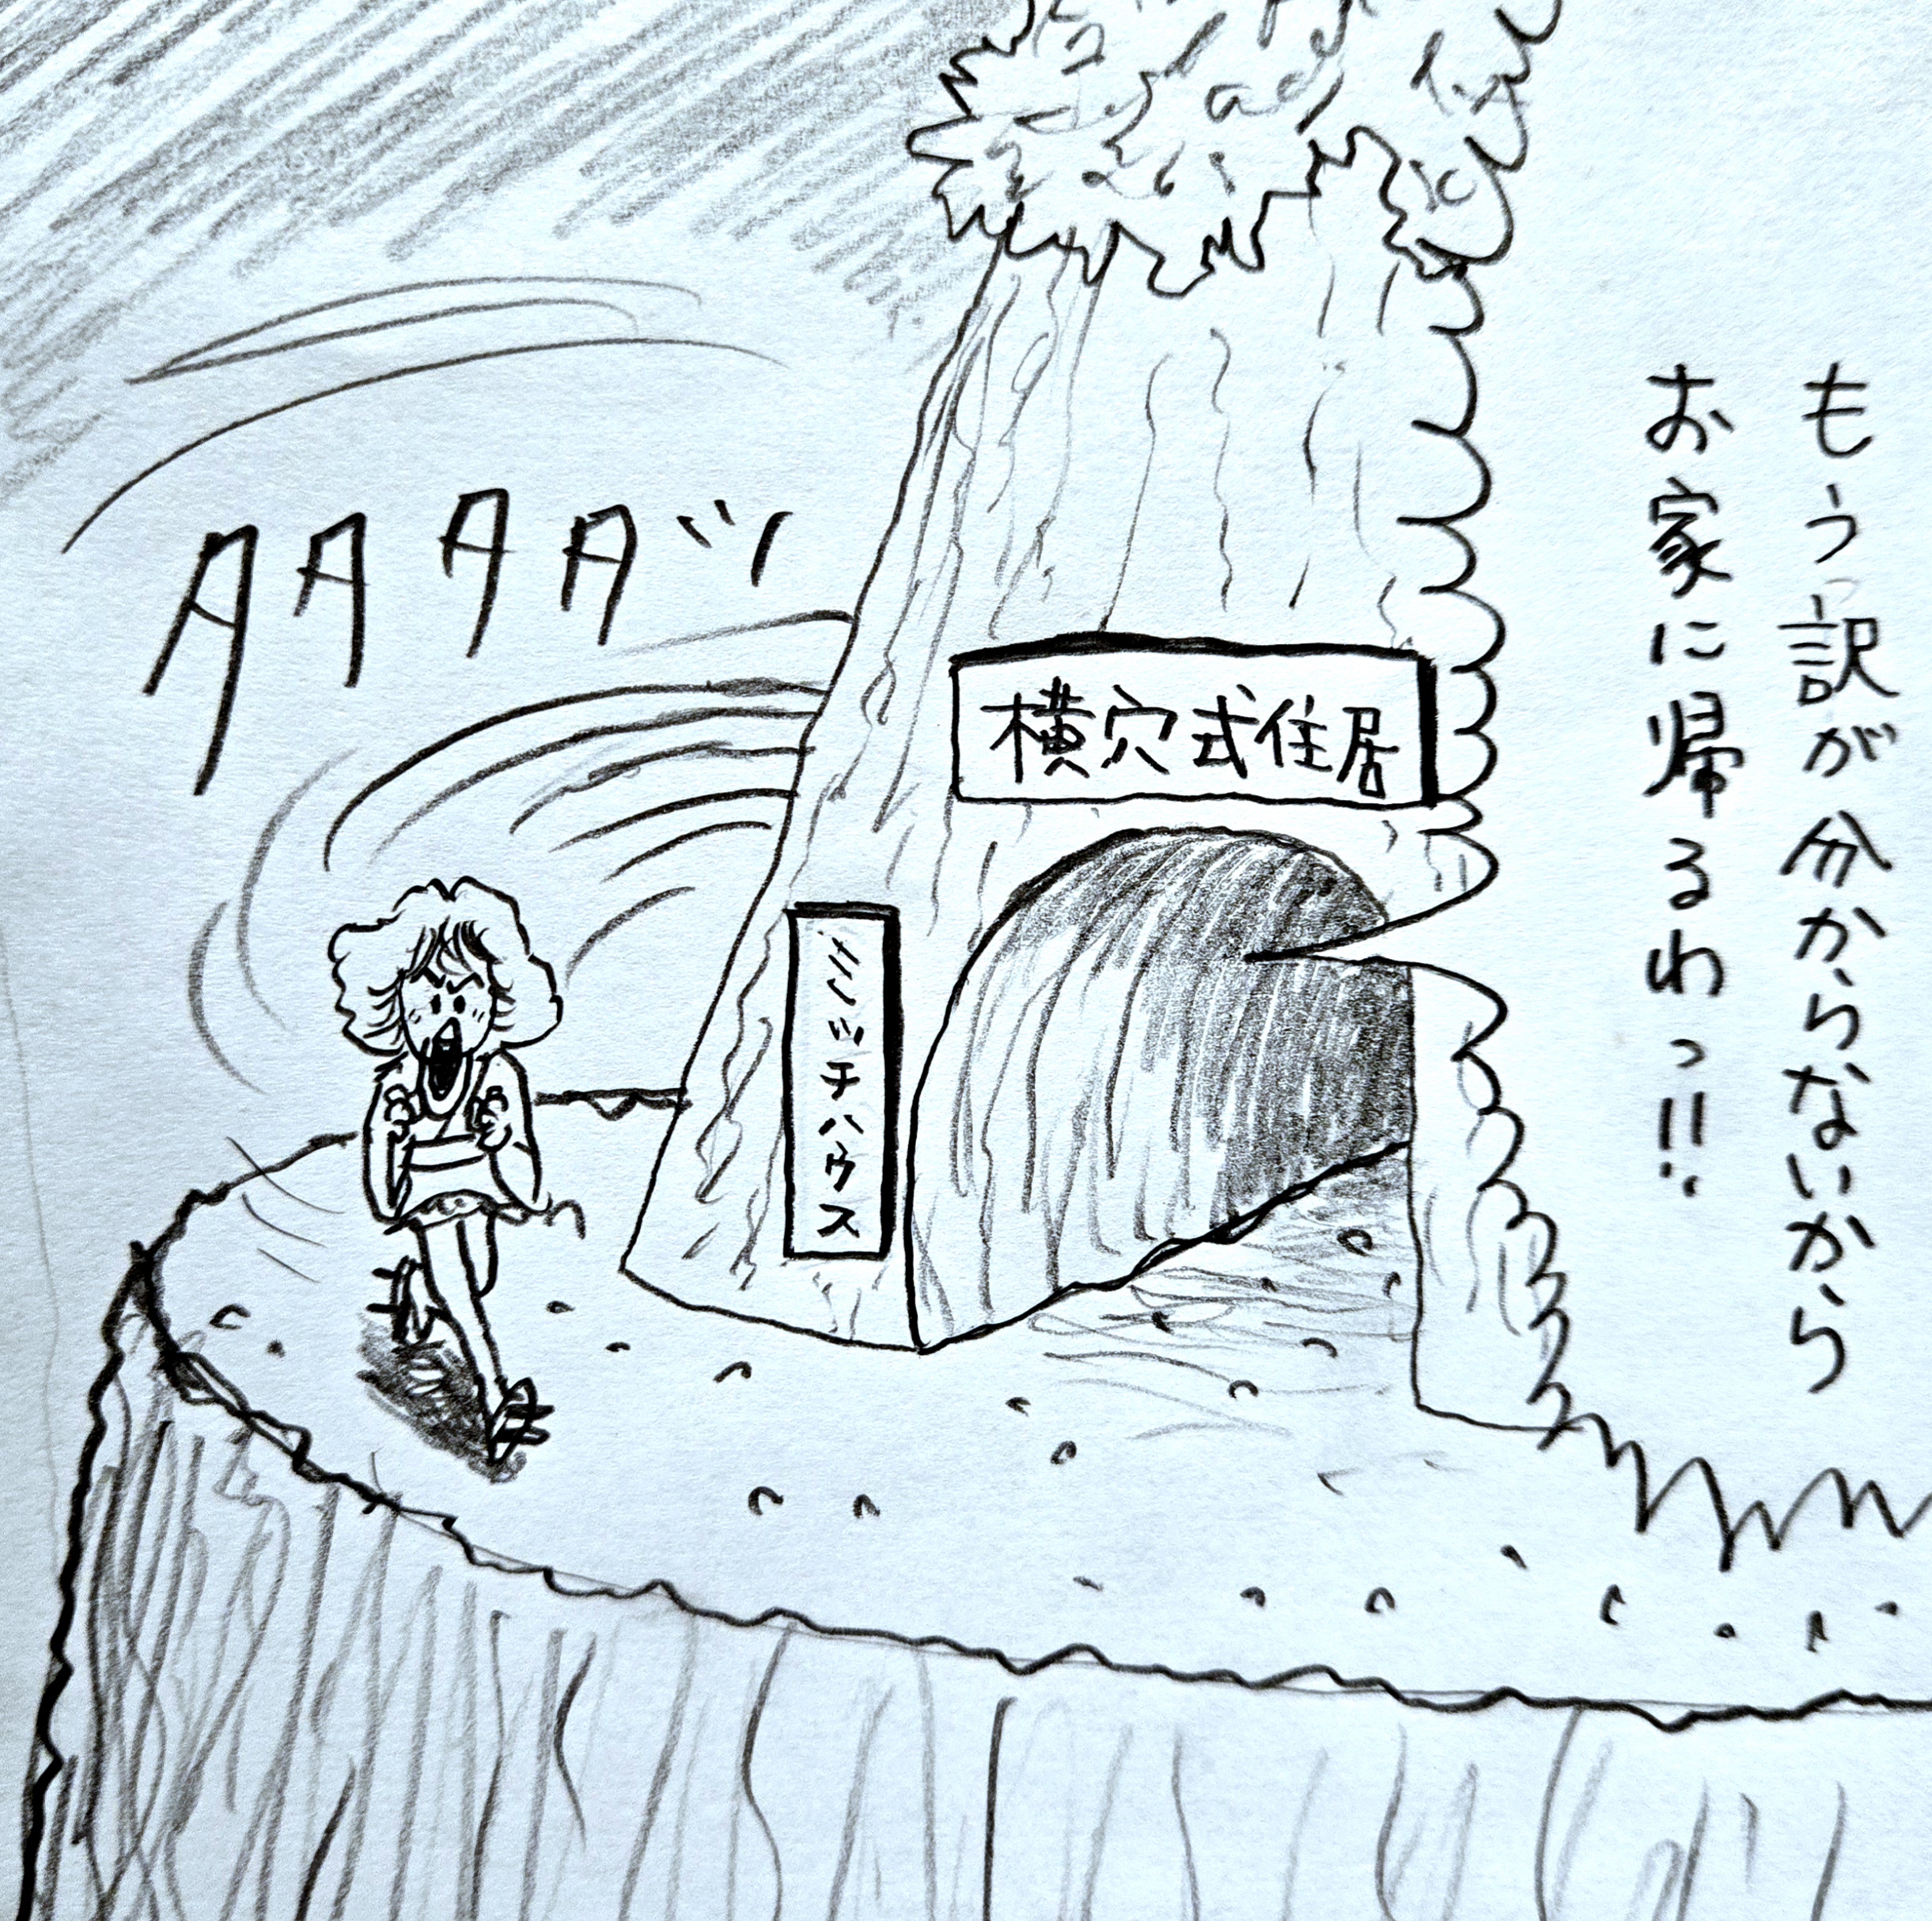 もうっ訳が分からないから
お家に帰るわっ!!
横穴式住居
タタタタッ
ッチハウス